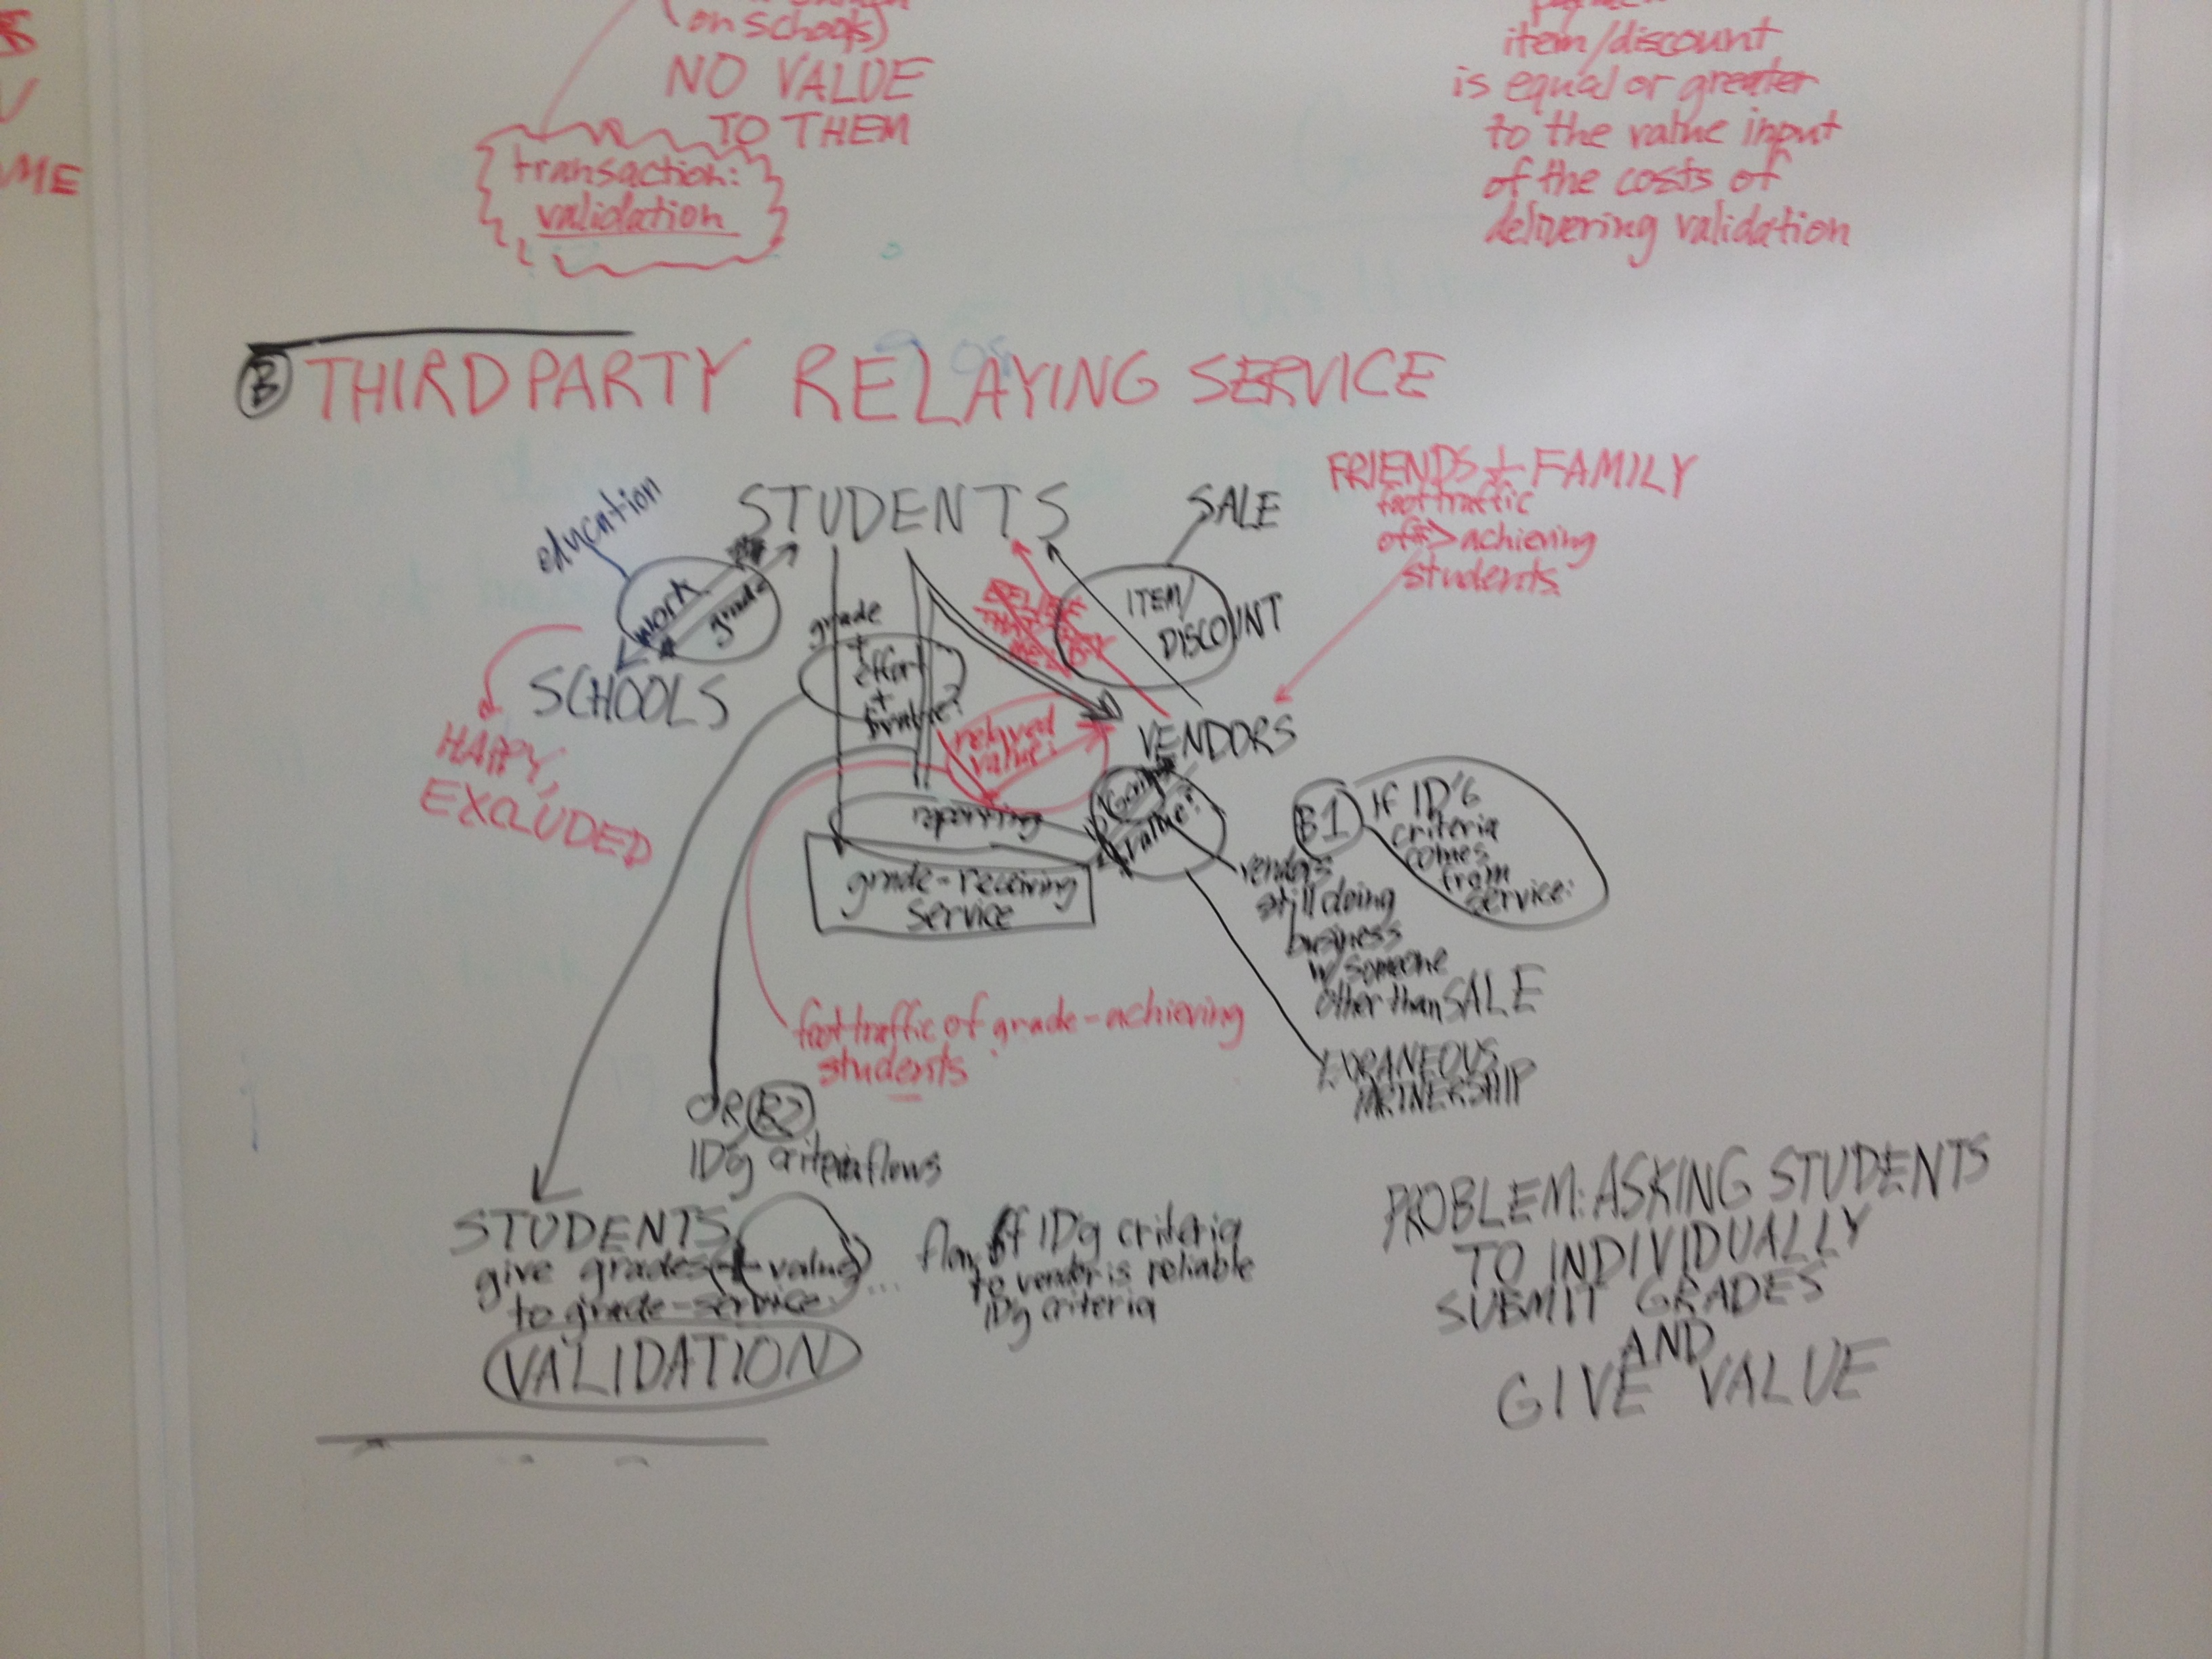 ME
on schools)
NO VALUE
TO THEM
transaction:
validation
item/discount
is equal or greater
to the value input
of the costs of
delivering validation
B THIRD PARTY RELAYING SERVICE
education
STUDENTS
SALE
FRIENDS + FAMILY
foot traffic
of > achieving
students
work
grade
grade
+
effort
+
ITEM/
DISCOUNT
SCHOOLS
HAPPY,
EXCLUDED
relayed
value:
VENDORS
value?
reporting
grade-receiving
service
B1
If ID'g
criteria
comes
from
service:
vendors
still doing
business
w/ someone
other than SALE
PARTNERSHIP
foot traffic of grade-achieving
students
OR B2
IDg criteria flows
STUDENTS
give grades + value
to grade-service:
VALIDATION
flow of IDg criteria
to vendor is reliable
IDg criteria
PROBLEM: ASKING STUDENTS
TO INDIVIDUALLY
SUBMIT GRADES
AND
GIVE VALUE